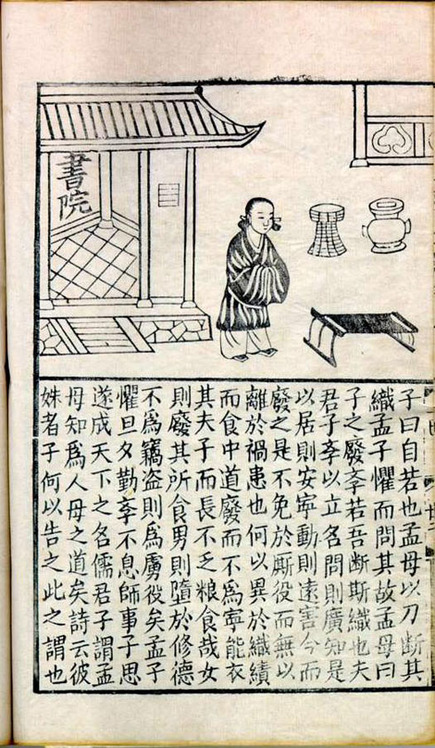 書院
子曰自若也孟母以刀斷其
織孟子懼而問其故孟母曰
子之廢斈若吾断斯織也夫
君子斈以立名問則廣知是
以居則安寧動則遠害今而
廢之是不免於厮役而無以
離於禍患也何以異於織績
而食中道廢而不爲寧能衣
其夫子而長不乏粮食哉女
則廢其所食男則墮於修德
不爲竊盗則爲虜役矣孟子
懼旦夕勤斈不息師事子思
遂成天下之名儒君子謂孟
母知爲人母之道矣詩云彼
姝者子何以告之此之謂也